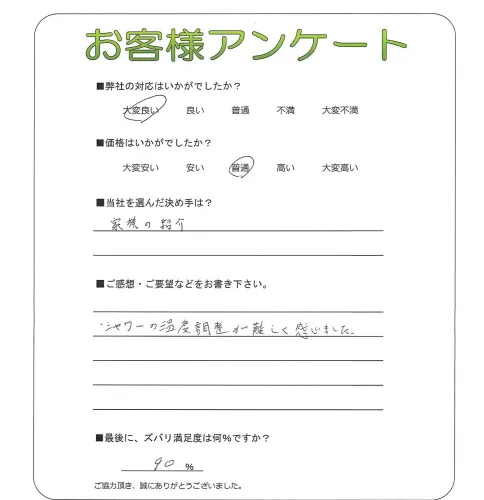 お客様アンケート
■弊社の対応はいかがでしたか？
大変良い 良い 普通 不満 大変不満
■価格はいかがでしたか？
大変安い 安い 普通 高い 大変高い
■当社を選んだ決め手は？
家族の紹介
■ご感想・ご要望などをお書き下さい。
・シャワーの温度調整が難しく感じました。
■最後に、ズバリ満足度は何%ですか？
90 %
ご協力頂き、誠にありがとうございました。